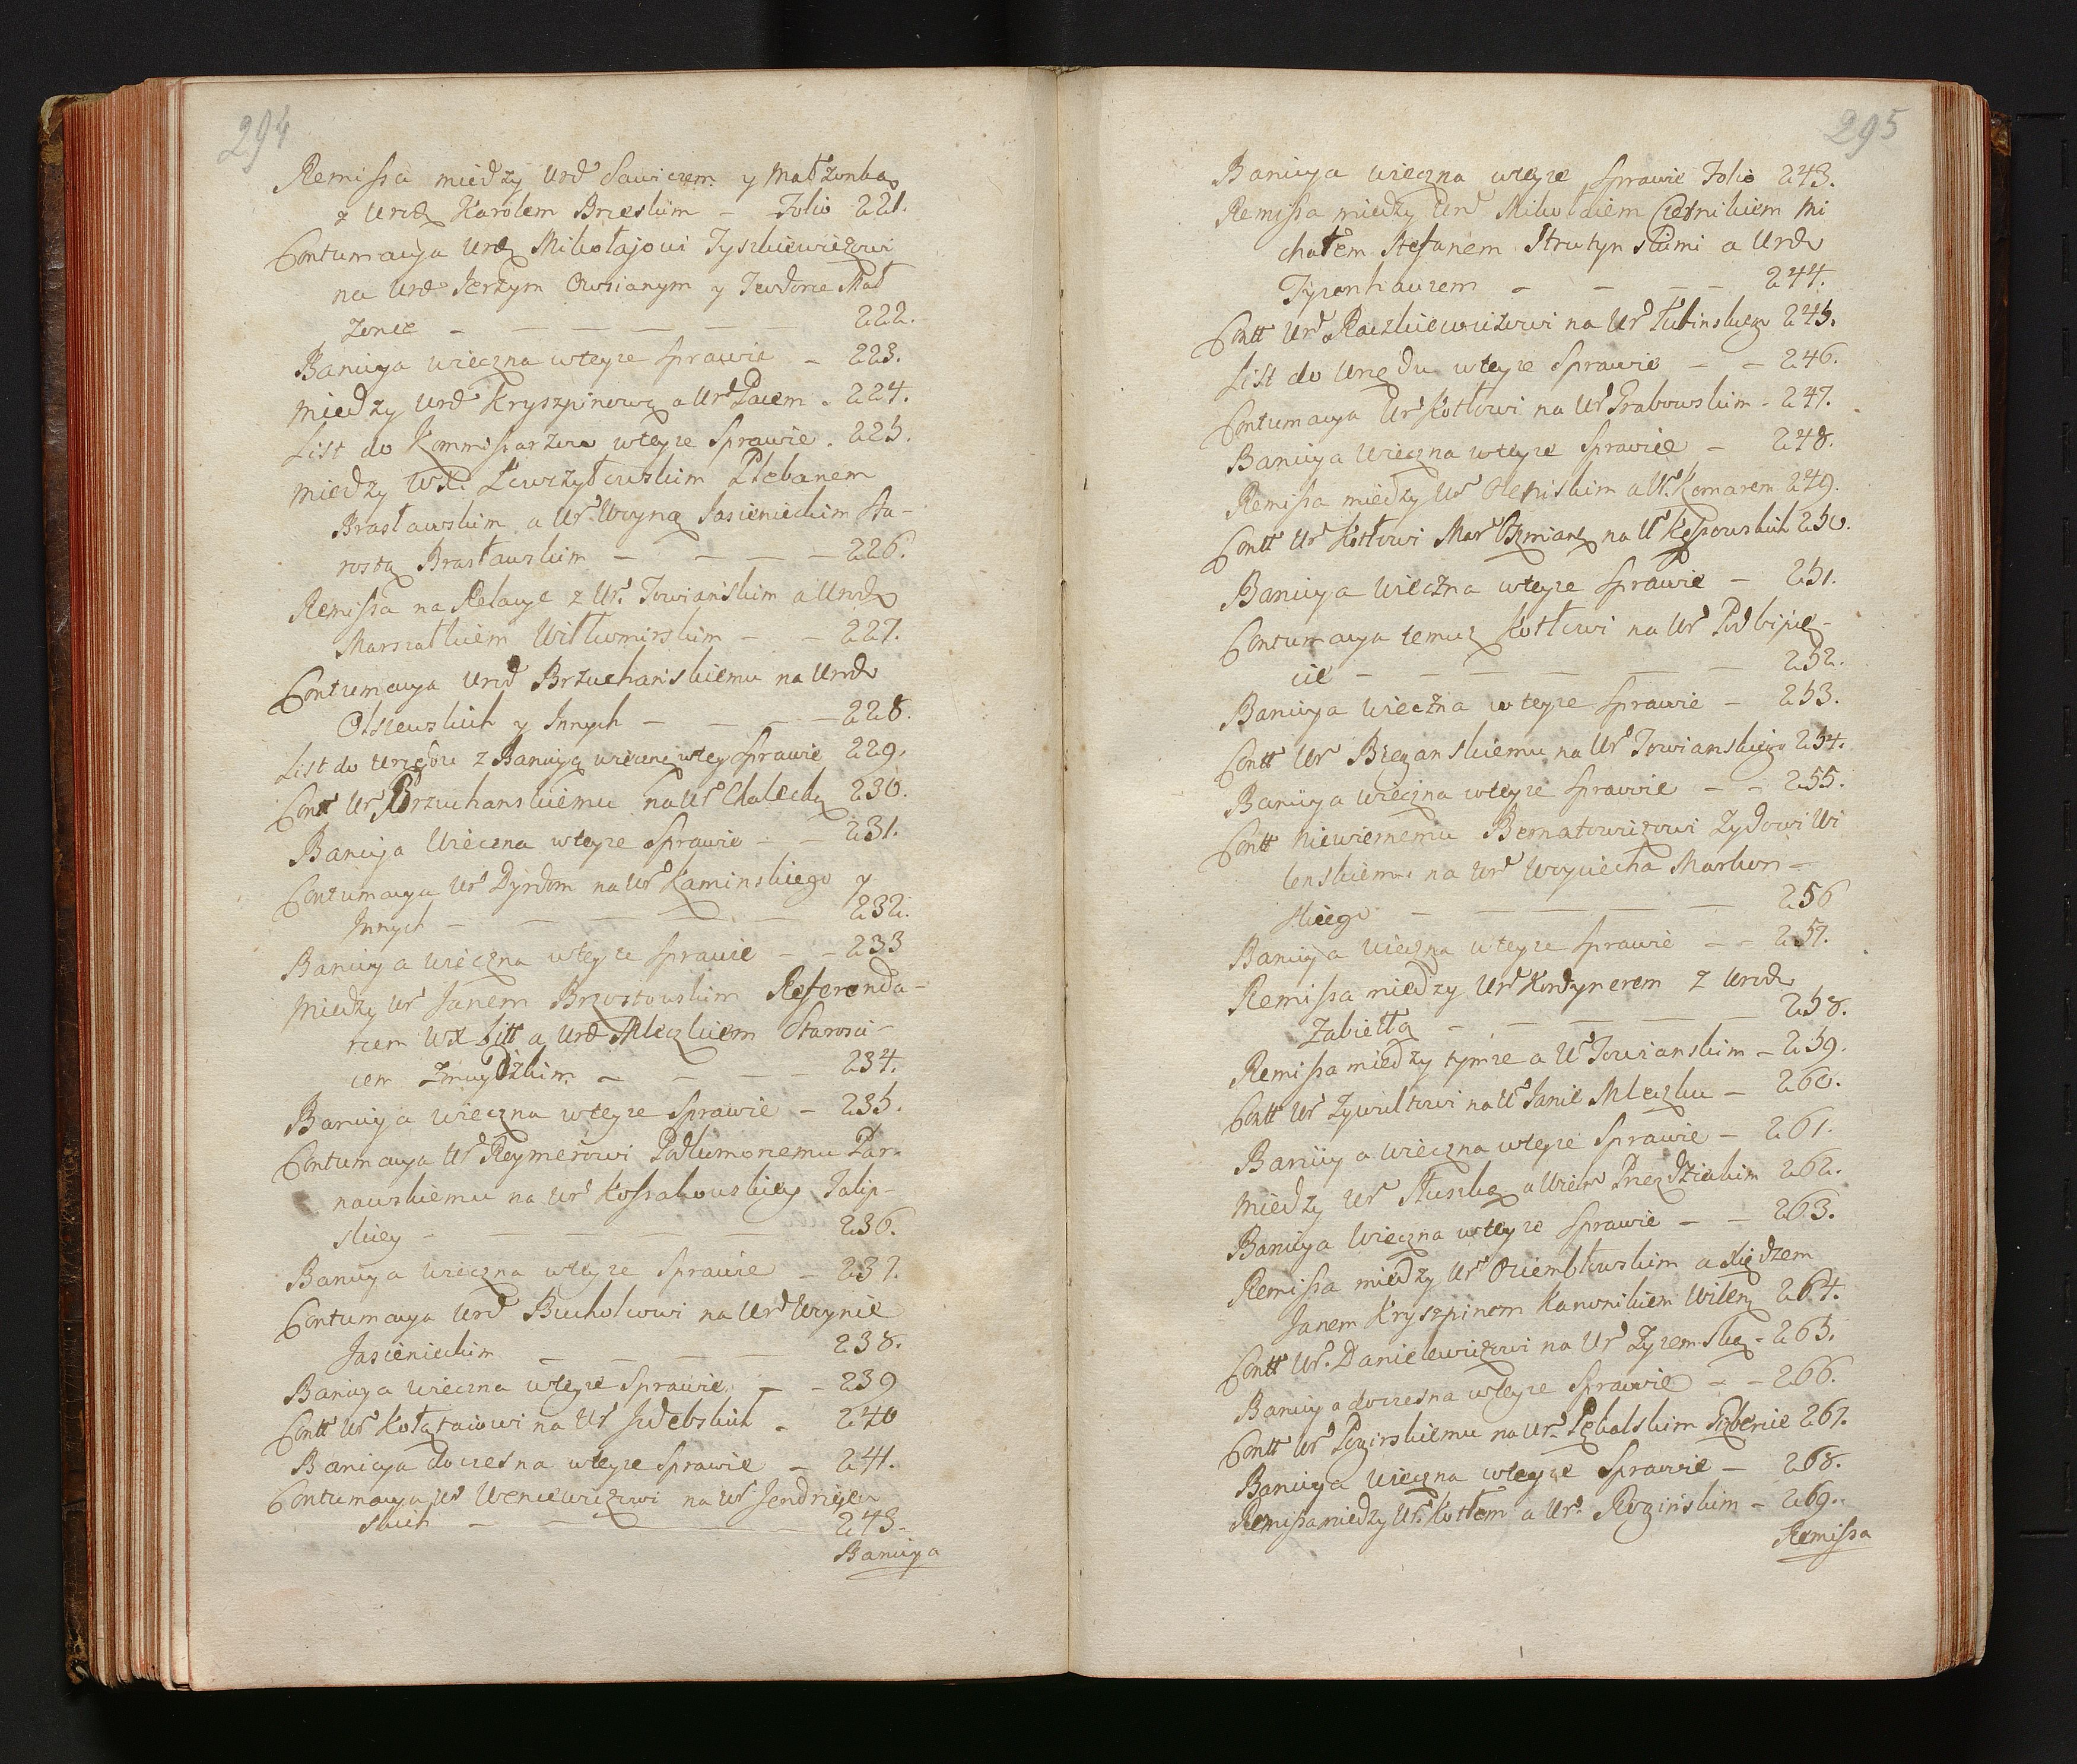 294
Remissa między Urd Sawiczem y Małżonką
z Urdz Karolem Brzeskim – Folio 221.
Contumacya Urdz Mikołajowi Tyszkiewiczowi
na Urd Jerzym Owsianym y Teodorze Mał
żonce – – – – – – 222.
Banicya wieczna wteyże sprawie – 223.
Między Urd Kryszpinową a Ur Pacem . 224.
List do Kommissarzow wteyże Sprawie . 225.
Między WX. Plebanem
Brasławskim a Ur. Woyną Jasienieckim Sta-
rostą Brasławskim – – – – 226.
Remissa na Relacye z Ur. Towiańskim a Urodz
Marszałkiem Wiłkomirskim – – 227.
Contumacya Urd Brzuchańskiemu na Urodz
Olszewskich y Innych – – – – 228.
List do Urzędu z Banicyą wieczną wtey Sprawie 229.
Contt Ur Brzuchanskiemu na Ur Chalecką 230.
Banicya Wieczna wteyże Sprawie – – 231.
Contumacya Ur Dyrdom na Ur Kaminskiego y
Innych – – – – – 232.
Banicya wieczna wteyże sprawie – – 233
Między Ur Janem Brzostowskim Referenda-
rzem WX Litt a Urd Mleczkiem Starosci-
cem Zmuydzkim – – – – 234.
Banicya wieczna wteyże Sprawie – 235.
Contumacya Ur Reymerowi Podkomorzemu Par-
nawskiemu na Ur Kossakowskiey Falip-
skiey – – – – – 236.
Banicya wieczna wteyże Sprawie – 237.
Contumacya Urd Bucholcowi na Urd Woynie
Jasienieckim – – – – 238.
Banicya wieczna wteyże Sprawie – – 239
Contt Ur Kołątaiowi na Ur Izdebskich – 240
Banicya doczesna wteyże Sprawie – 241.
Contumacya Ur Wencewiczowi na Ur
skich – – – – – 243.
Banicya
295
Banicya wieczna wteyże Sprawie Folio 243.
Remissa miedzy Urd Cześnikiem Mi
chałem Stefanem Strutynskimi a Urodz
Tyzenhauzem – – – – 244.
Contt Ur Raczkiewiczowi na Ur Łubinskiego 245.
List do Urzędu wteyże Sprawie – – 246.
Contumacya Ur Kotłowi na Ur Grabowskim – 247.
Banicya Wieczna wteyże Sprawie – 248.
Remissa miedzy Ur a Ur. Komarem 249.
Contt Ur Kotłowi Mar Ozmianz na Ur 250.
Banicya Wieczna wteyże Sprawie – 251.
Contumacya temuz Kotłowi na Ur Podbipię-
cie – – – – – – 252.
Banicya wieczna w teyże Sprawie – 253.
Contt Ur Brzezanskiemu na Ur Towianskiego 254.
Banicya wieczna wteyże Sprawie – – 255.
Contt niewiernemu Bernatowiczowi Zydowi Wi
lenskiemu na Ur Woyciecha Markow-
skiego – – – – – 256
Banicya wieczna wteyże Sprawie – – 257.
Remissa miedzy Ur Kordynerem z Urodz
Zabiełłą – – – – – 258.
Remissa miedzy tymże a Ur Towianskim – 259.
Contt Ur Zywultowi na Ur Janie Mleczku – 260.
Banicya wieczna wteyże Sprawie – 261.
Między Ur Słuszką a Wiel Przezdzieckim 262.
Banicya Wieczna wteyże Sprawie – – 263.
Remissa miedzy Ur Oziembłowskim a xiędzem
Janem Kryszpinem Kanonikiem Wilenz 264.
Contt Ur. Danilewiczowi na Ur Zyzemską – 265.
Banicya doczesna wteyże Sprawie – – 266.
Contt Ur na Ur. Pękalskim 267.
Banicya Wieczna wteyże Sprawie – 268.
Remissa miedzy Ur. Kotłem a Ur. Rozińskim – 269.
Remissa